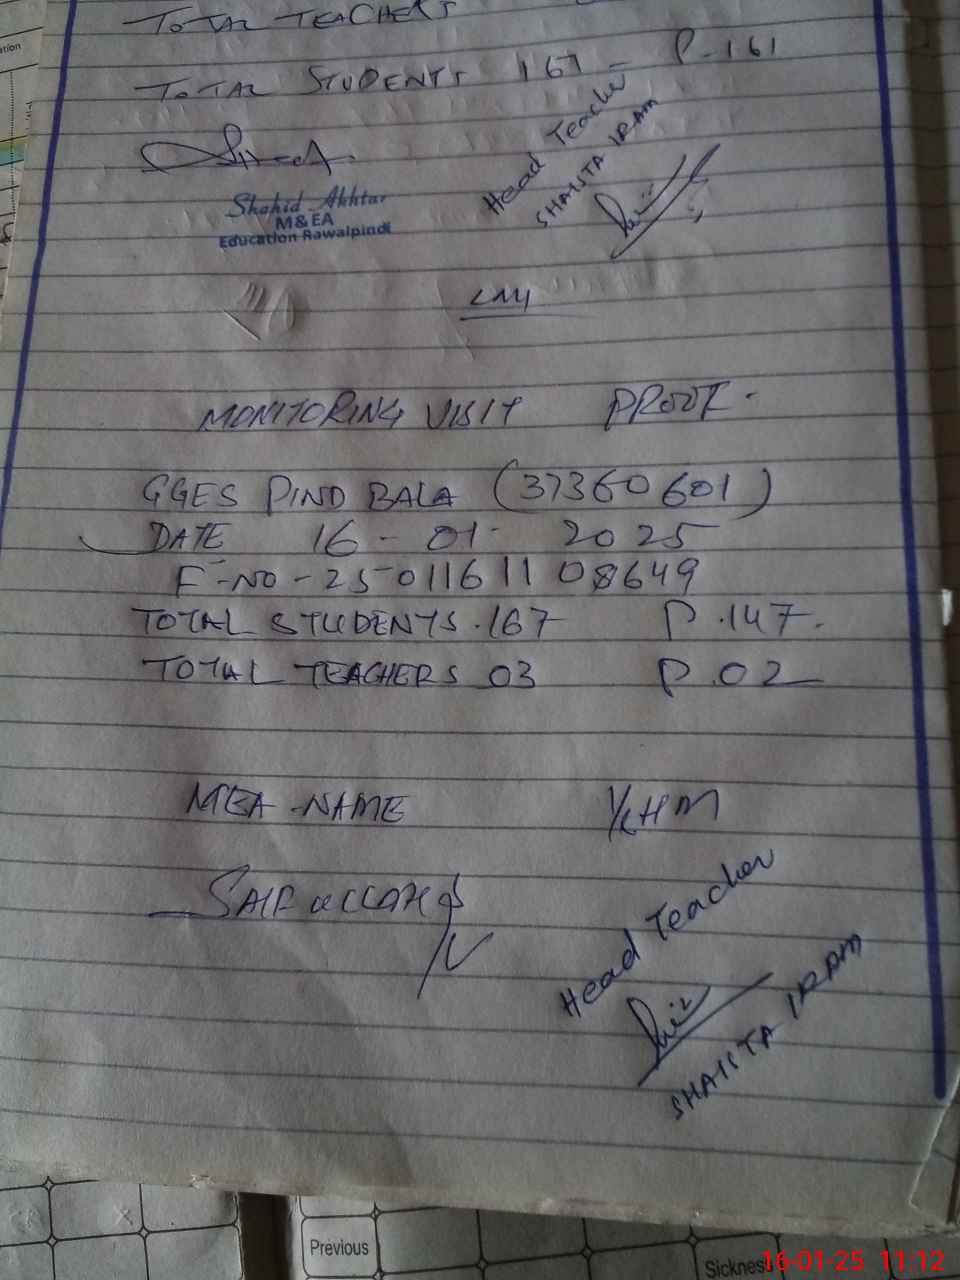 TOTAL TEACHERS
TOTAL STUDENTS 167 - P. 161
Head Teacher
SHAISTA IRAM
Shahid Akhtar
M&EA
Education Rawalpindi
MONITORING VISIT PROOF -
GGES PIND BALA (37360601)
DATE 16 - 01 - 2025
F-NO - 25-011611 08649
TOTAL STUDENTS . 167 P . 147 .
TOTAL TEACHERS 03 P . 02
MEA - NAME HM
SAIF ULLAH
Head Teacher
SHAISTA IRAM
Previous
Sickness
16-01-25 11:12
ation